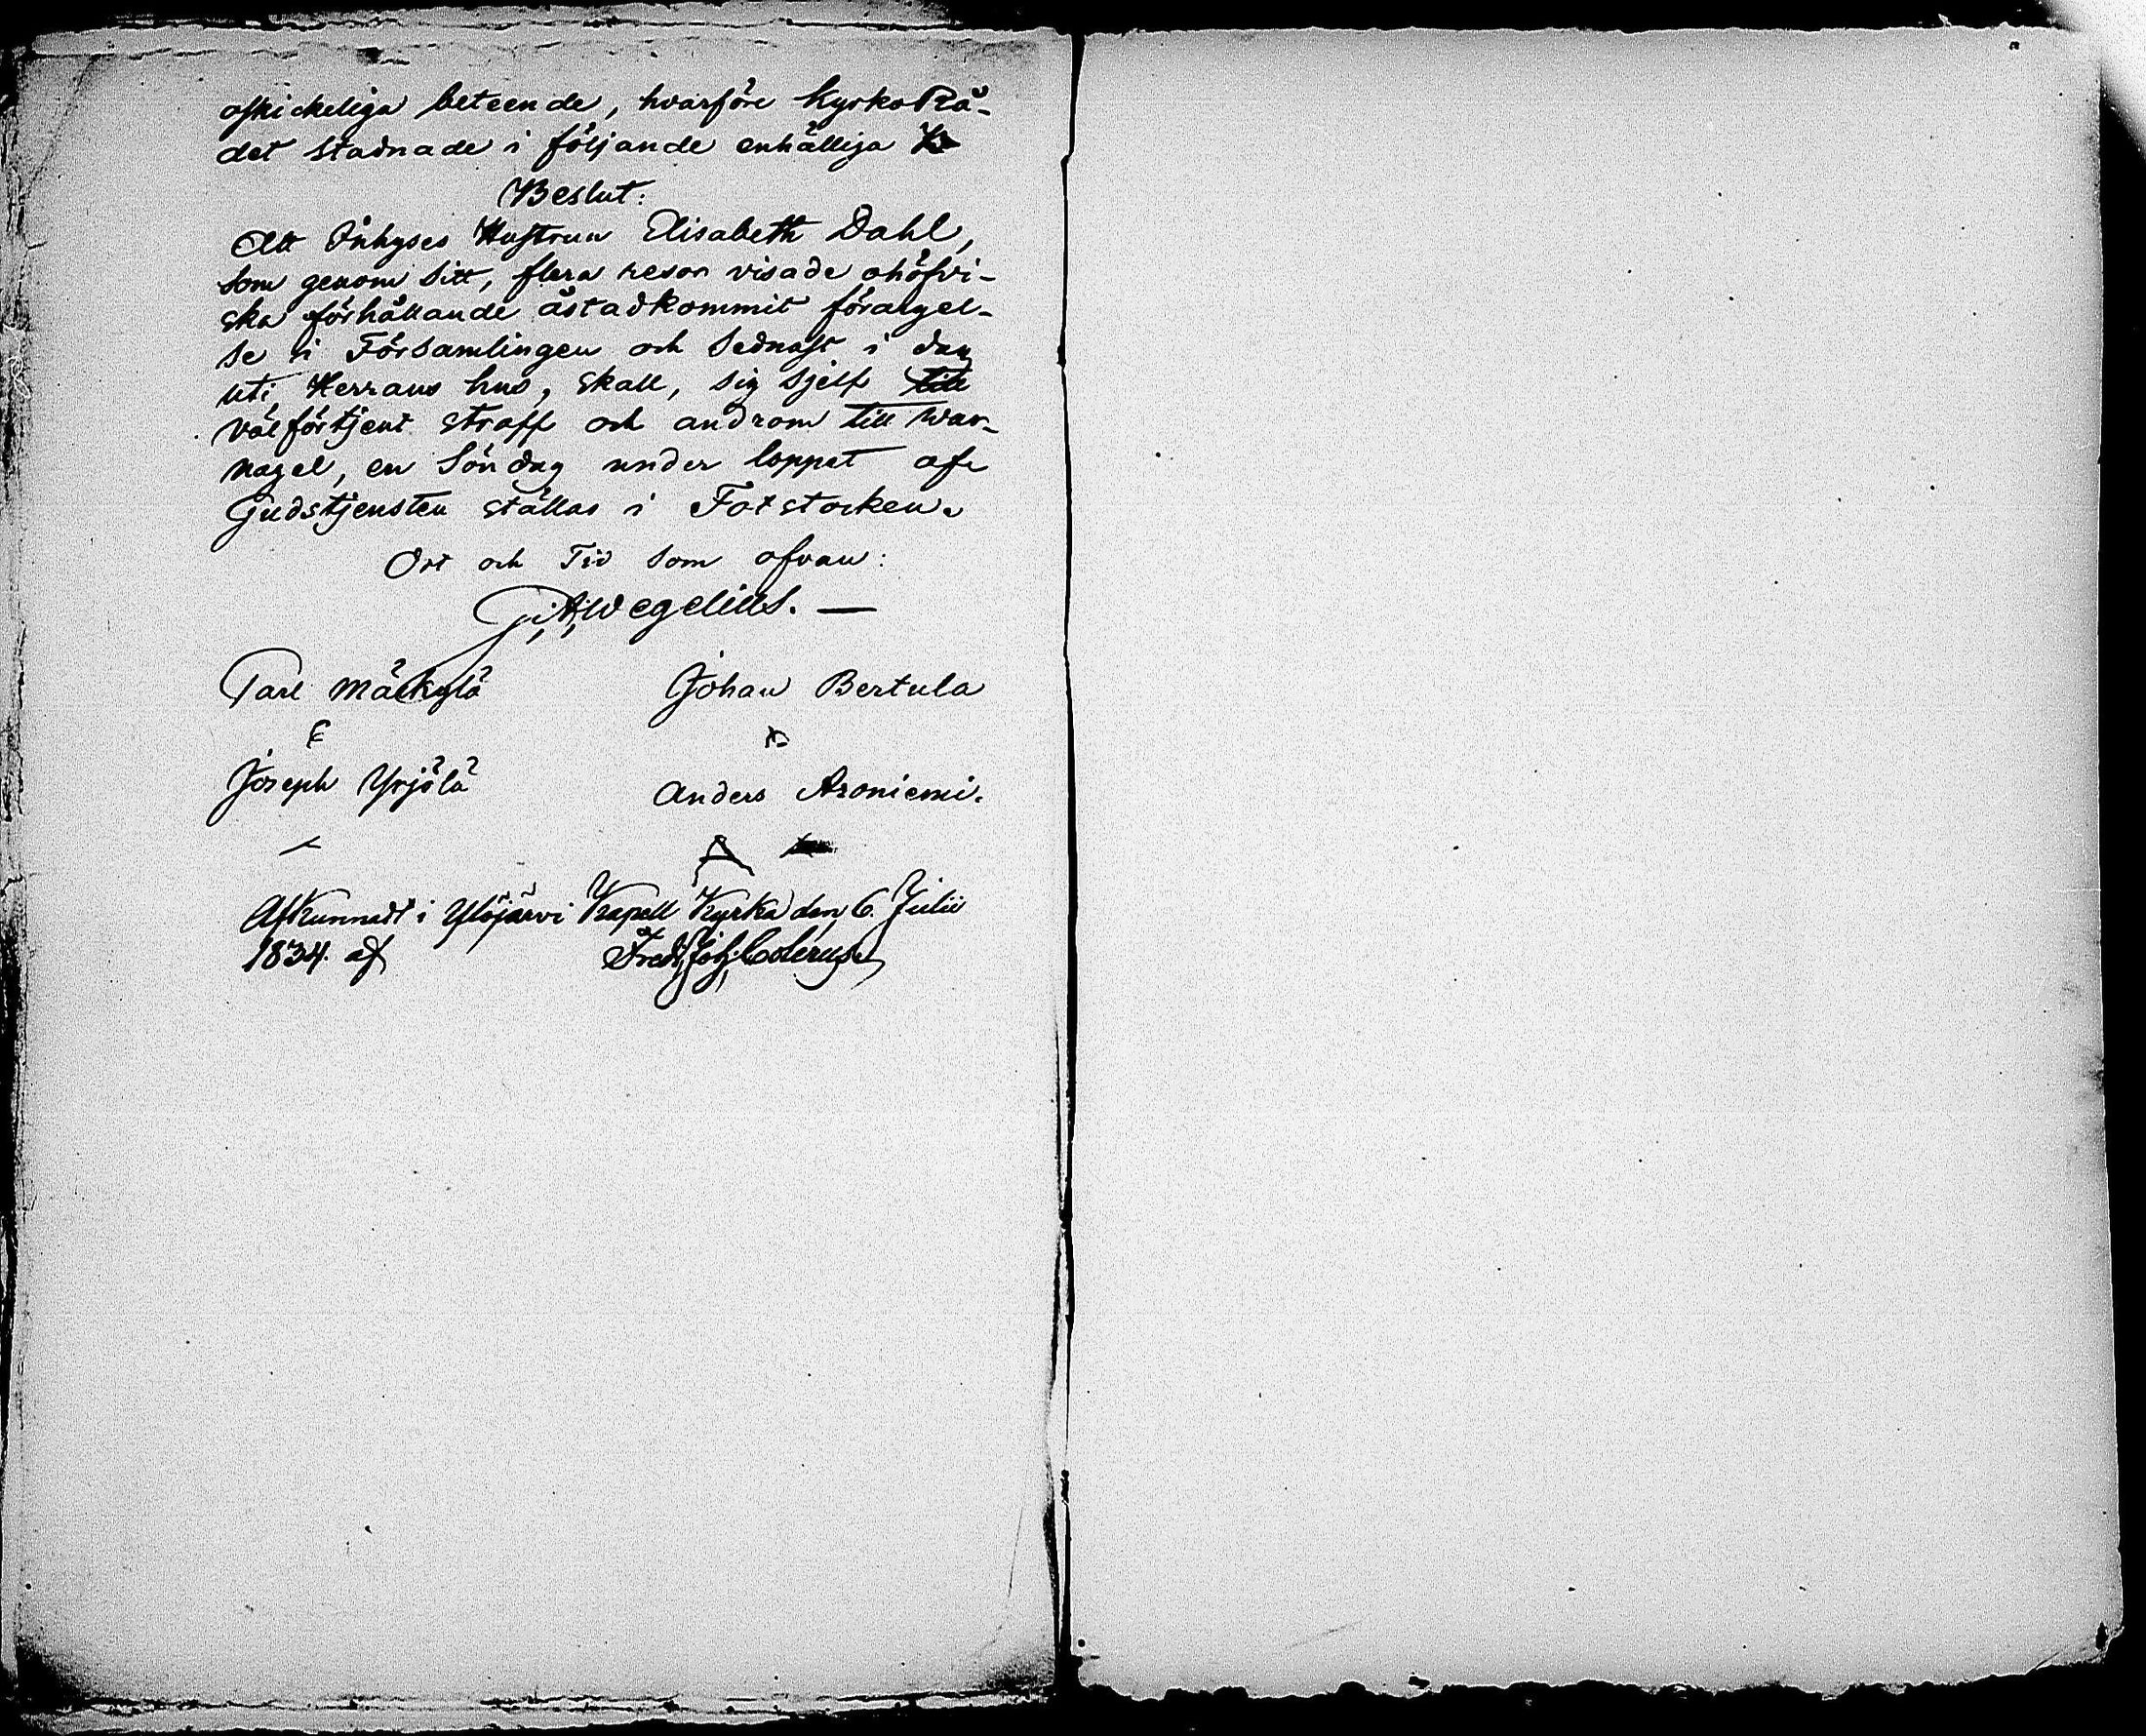 oskickeliga beteende, hvarföre KyrkoRå-
det stadnade i följande enhälliga
Beslut:
Att Inhyses Hustrun Elisabeth Dahl,
som genom sitt, flera resor visade ohöfvi-
ska förhållande åstadkommit förargel-
se i Församlingen och sednast i dag
uti Herrans hus, skall, sig sjelf till
välförtjent straff och androm till war-
nagel, en Söndag under loppet af
Gudstjensten ställas i Fotstocken.
Ort och Tid som ofvan:
G. A. Wegelius. —
Carl Mäckylä Johan Bertula
Joseph Yrjölä Anders Aroniemi.
Afkunnadt i Ylöjärvi Kapell Kyrka den 6. Julii
1834. af Fredr. Joh. Colerus.